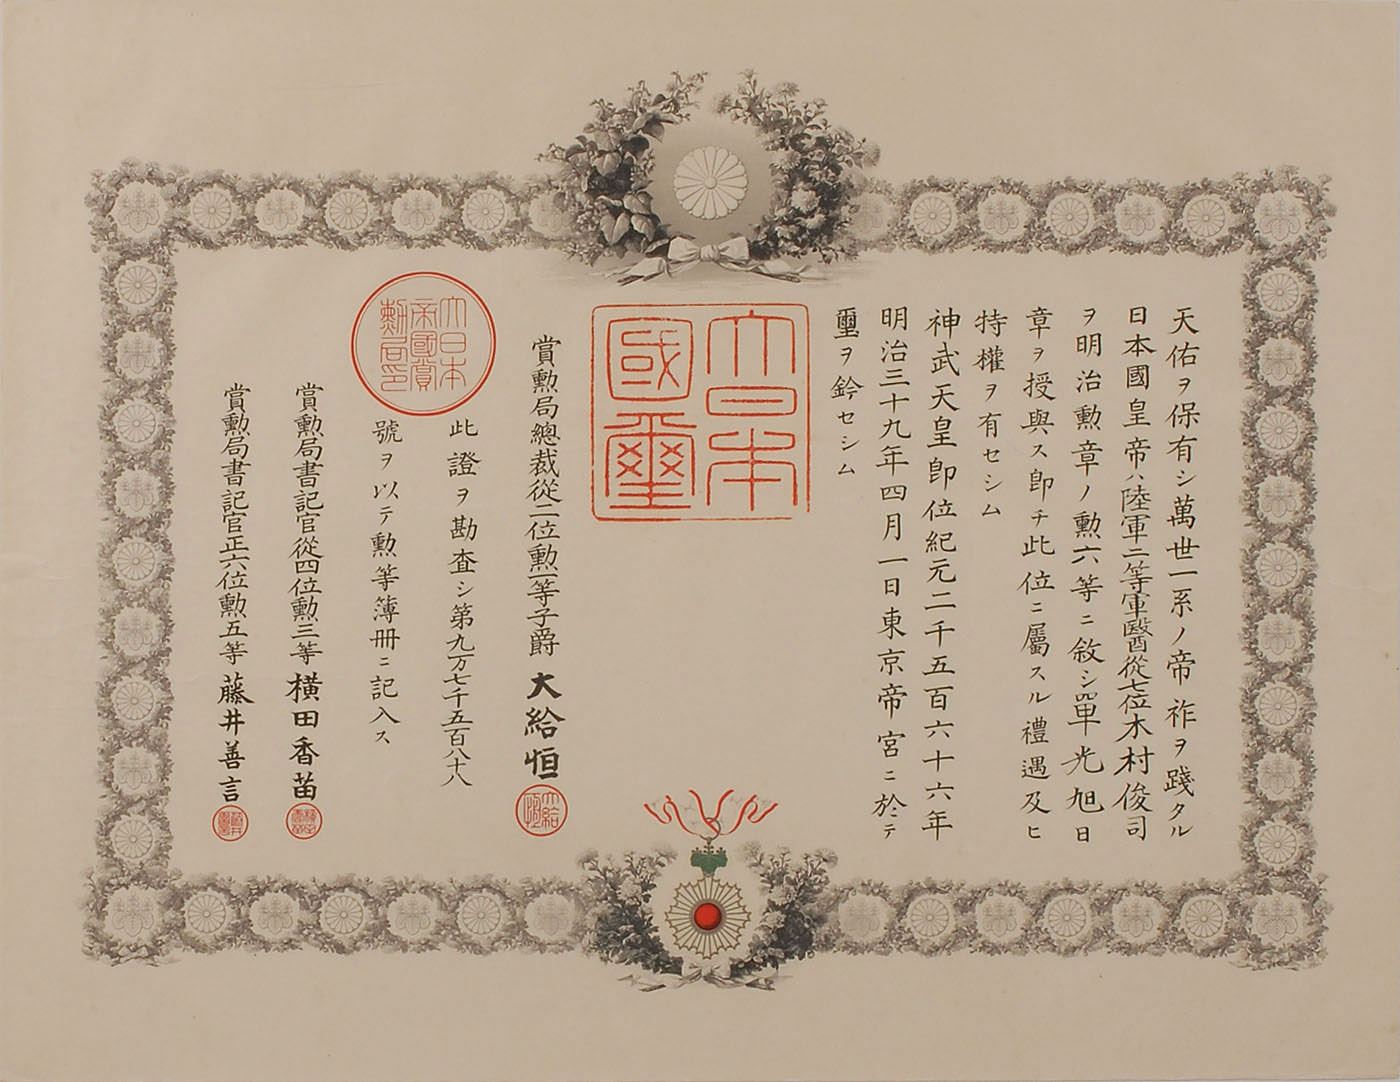 天佑ヲ保有シ萬世一系ノ帝祚ヲ踐タル
日本國皇帝ハ陸軍二等軍醫從七位木村俊司
ヲ明治勲章ノ勲六等ニ敘シ單光旭日
章ヲ授與ス卽チ此位ニ屬スル禮遇及ヒ
特權ヲ有セシム
神武天皇卽位紀元二千五百六十六年
明治三十九年四月一日東京帝宮ニ於テ
璽ヲ鈐セシム
大日本
國璽
賞勲局總裁從二位勲一等子爵大給恒
大給恒
此證ヲ勘査シ第九万七千五百八十八
號ヲ以テ勲等簿冊ニ記入ス
大日本
帝國賞
勲局印
賞勲局書記官從四位勲三等橫田香苗
賞勲局書記官正六位勲五等藤井善言